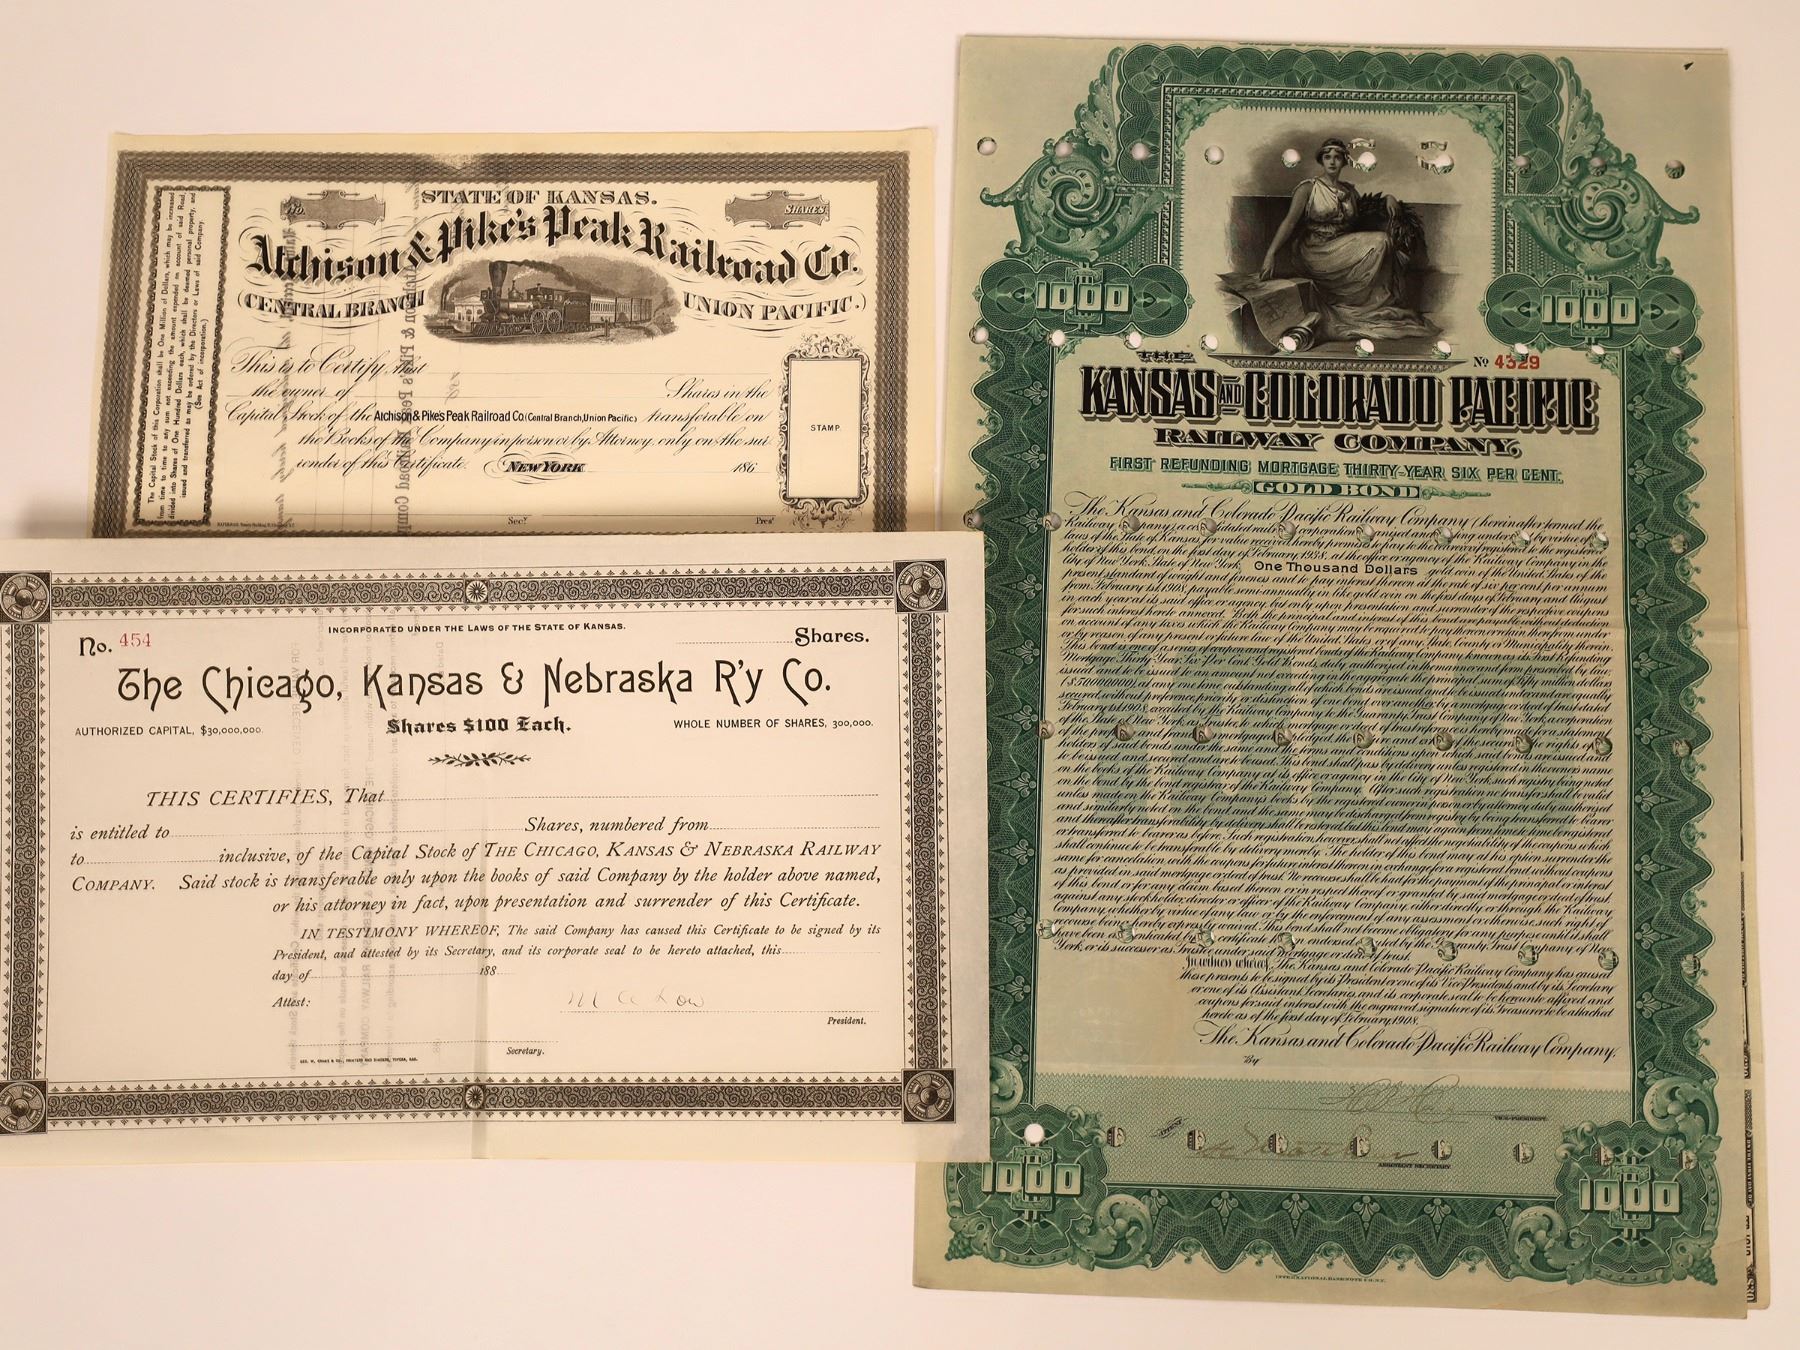 STATE OF KANSAS.
No.
SHARES
Atchison & Pike's Peak Railroad Co.
(CENTRAL BRANCH
UNION PACIFIC.)
The Capital Stock of this Corporation shall be One Million of Dollars, which may be increased
from time to time to any sum not exceeding the amount expended on account of said Road,
divided into Shares of One Hundred Dollars each, which shall be deemed personal property, and
issued and transferred as may be ordered by the Directors or Laws of said Company.
(See Act of incorporation.)
This is to Certify that
the owner of Shares in the
Capital Stock of the Atchison & Pike's Peak Railroad Co. (Central Branch, Union Pacific) transferable on
the Books of the Company in person or by Attorney, only on the sur
render of this Certificate. NEW YORK 186
STAMP.
Secy.
Prest.
INCORPORATED UNDER THE LAWS OF THE STATE OF KANSAS.
No. 454
Shares.
The Chicago, Kansas & Nebraska R'y Co.
AUTHORIZED CAPITAL, $30,000,000.
Shares $100 Each.
WHOLE NUMBER OF SHARES, 300,000.
THIS CERTIFIES, That
is entitled to Shares, numbered from
to inclusive, of the Capital Stock of THE CHICAGO, KANSAS & NEBRASKA RAILWAY
COMPANY. Said stock is transferable only upon the books of said Company by the holder above named,
or his attorney in fact, upon presentation and surrender of this Certificate.
IN TESTIMONY WHEREOF, The said Company has caused this Certificate to be signed by its
President, and attested by its Secretary, and its corporate seal to be hereto attached, this
day of 188
Attest:
M A Low
President.
Secretary.
GEO. W. CRANE & CO., PRINTERS AND BINDERS, TOPEKA, KAS.
1000
1000
THE
No 4329
KANSAS AND COLORADO PACIFIC
RAILWAY COMPANY,
FIRST REFUNDING MORTGAGE THIRTY-YEAR SIX PER CENT.
GOLD BOND
The Kansas and Colorado Pacific Railway Company (hereinafter termed the
Railway Company), a consolidated railroad corporation organized and existing under and by virtue of the
laws of the State of Kansas, for value received, hereby promises to pay to the bearer or if registered to the registered
holder of this bond, on the first day of February, 1938, at the office or agency of the Railway Company in the
City of New York, State of New York, One Thousand Dollars gold coin of the United States of the
present standard of weight and fineness and to pay interest thereon at the rate of six per cent per annum
from February 1st, 1908, payable semi-annually in like gold coin on the first days of February and August
in each year at its said office or agency, but only upon presentation and surrender of the respective coupons
for such interest hereto annexed. Both the principal and interest of this bond are payable without deduction
on account of any taxes which the Railway Company may be required to pay thereon or retain therefrom under
or by reason of any present or future law of the United States or of any State, County or Municipality therein.
This bond is one of a series of coupon and registered bonds of the Railway Company known as its First Refunding
Mortgage Thirty-Year Six Per Cent Gold Bonds, duly authorized in the manner and form prescribed by law,
issued and to be issued to an amount not exceeding in the aggregate the principal sum of fifty million dollars
($50,000,000) at any one time outstanding, all of which bonds are issued and to be issued under and are equally
secured, without preference, priority or distinction of one bond over another, by a mortgage or deed of trust dated
February 1st, 1908, executed by the Railway Company to the Guaranty Trust Company of New York, a corporation
of the State of New York, as Trustee, to which mortgage or deed of trust reference is hereby made for a statement
of the property and franchises mortgaged and pledged, the nature and extent of the security, the rights of the
holders of said bonds under the same and the terms and conditions upon which said bonds are issued and
to be issued and secured and are to be used. This bond shall pass by delivery unless registered in the owner's name
on the books of the Railway Company at its office or agency in the City of New York, such registry being noted
on the bond by the bond registrar of the Railway Company. After such registration no transfer shall be valid
unless made on the Railway Company's books by the registered owner in person or by attorney duly authorized
and similarly noted on the bond, and the same may be discharged from registry by being transferred to bearer
and thereafter transferability by delivery shall be restored but this bond may again from time to time be registered
or transferred to bearer as before. Such registration, however, shall not affect the negotiability of the coupons which
shall continue to be transferable by delivery merely. The holder of this bond may at his option surrender the
same for cancelation, with the coupons for future interest thereon in exchange for a registered bond without coupons
as provided in said mortgage or deed of trust. No recourse shall be had for the payment of the principal or interest
of this bond or for any claim based thereon or in respect thereof or granted by said mortgage or deed of trust,
against any stockholder, director or officer of the Railway Company, either directly or through the Railway
Company, whether by virtue of any law or by the enforcement of any assessment or otherwise, such right of
recourse being hereby expressly waived. This bond shall not become obligatory for any purpose until it shall
have been authenticated by a certificate hereon endorsed executed by the Guaranty Trust Company of New
York, or its successor as Trustee under said mortgage or deed of trust.
In witness whereof, The Kansas and Colorado Pacific Railway Company has caused
these presents to be signed by its President or one of its Vice Presidents and by its Secretary
or one of its Assistant Secretaries and its corporate seal to be hereunto affixed and
coupons for said interest with the engraved signature of its Treasurer to be attached
hereto as of the first day of February, 1908.
The Kansas and Colorado Pacific Railway Company,
By
VICE-PRESIDENT.
ATTEST
ASSISTANT SECRETARY.
1000
1000
INTERNATIONAL BANK NOTE CO. N.Y.